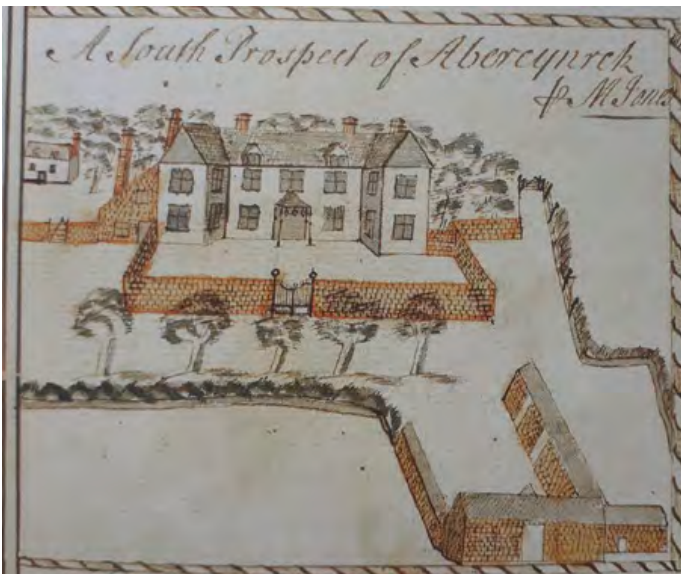 A South Prospect of Abercynrek
M Jones